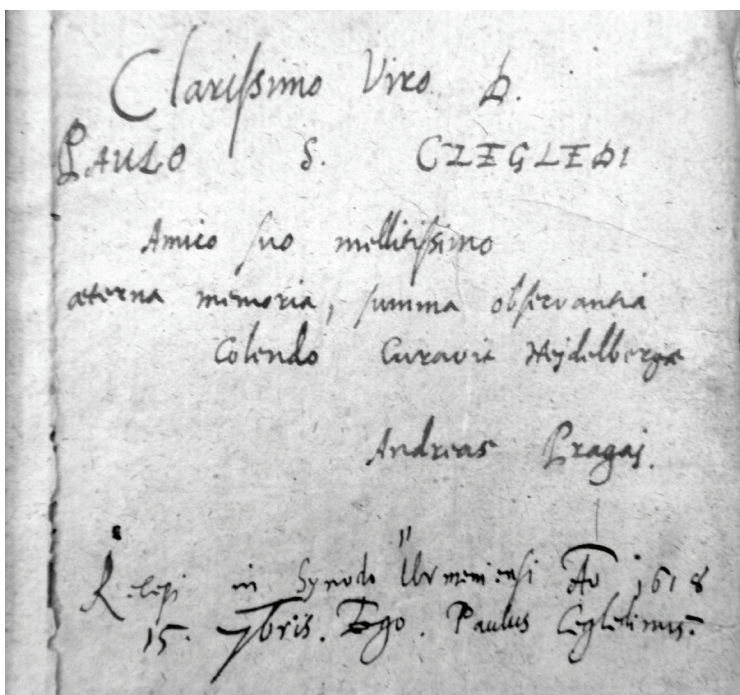 Clarissimo Viro D.
PAULO S. CZEGLEDI
Amico suo mellitissimo
æterna memoria, summa observantia
Colendo Curavit Heydelbergæ
Andreas Pragaj.
in Synodo Ürmeniensi Ao 1618
15. 7bris. Ego. Paulus Cegledinus.